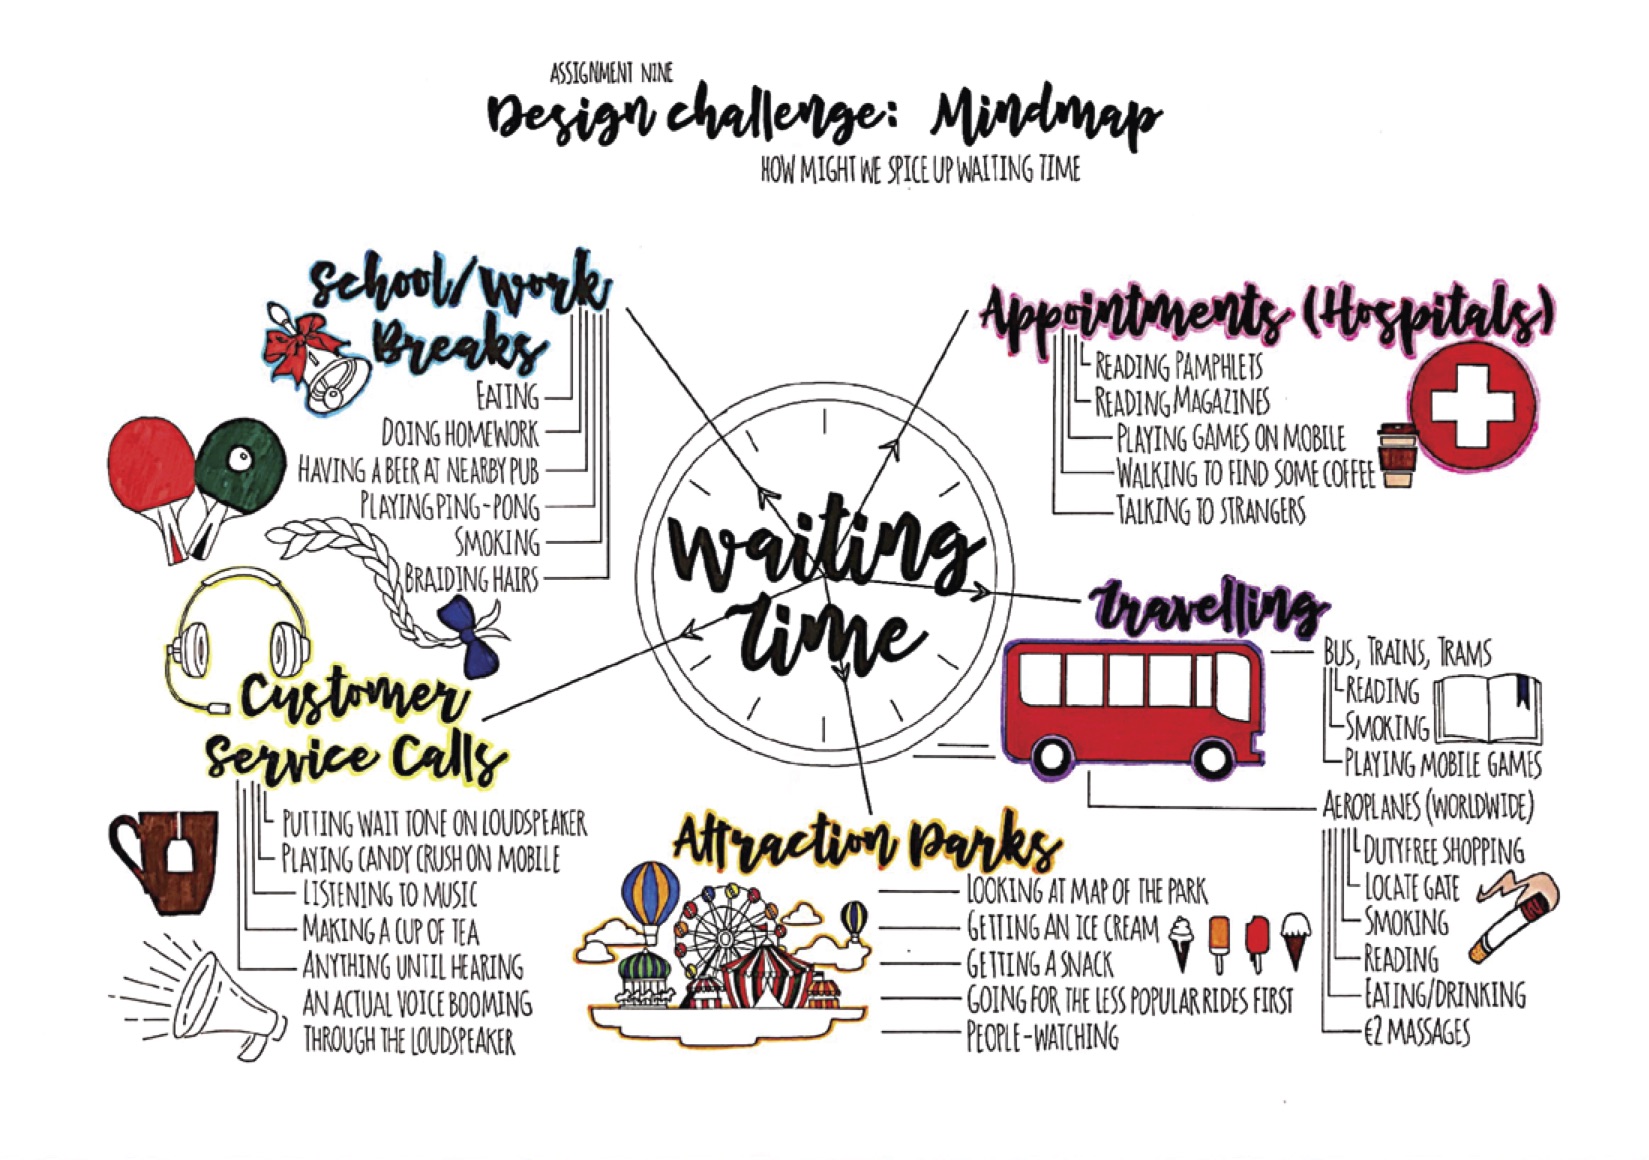 ASSIGNMENT NINE
Design challenge: Mindmap
HOW MIGHT WE SPICE UP WAITING TIME
School/Work
Breaks
EATING
DOING HOMEWORK
HAVING A BEER AT NEARBY PUB
PLAYING PING-PONG
SMOKING
BRAIDING HAIRS
Appointments (Hospitals)
READING PAMPHLETS
READING MAGAZINES
PLAYING GAMES ON MOBILE
WALKING TO FIND SOME COFFEE
TALKING TO STRANGERS
Waiting
Time
Travelling
BUS, TRAINS, TRAMS
READING
SMOKING
PLAYING MOBILE GAMES
AEROPLANES (WORLDWIDE)
DUTYFREE SHOPPING
LOCATE GATE
SMOKING
READING
EATING/DRINKING
€2 MASSAGES
Customer
Service Calls
PUTTING WAIT TONE ON LOUDSPEAKER
PLAYING CANDY CRUSH ON MOBILE
LISTENING TO MUSIC
MAKING A CUP OF TEA
ANYTHING UNTIL HEARING
AN ACTUAL VOICE BOOMING
THROUGH THE LOUDSPEAKER
Attraction Parks
LOOKING AT MAP OF THE PARK
GETTING AN ICE CREAM
GETTING A SNACK
GOING FOR THE LESS POPULAR RIDES FIRST
PEOPLE-WATCHING